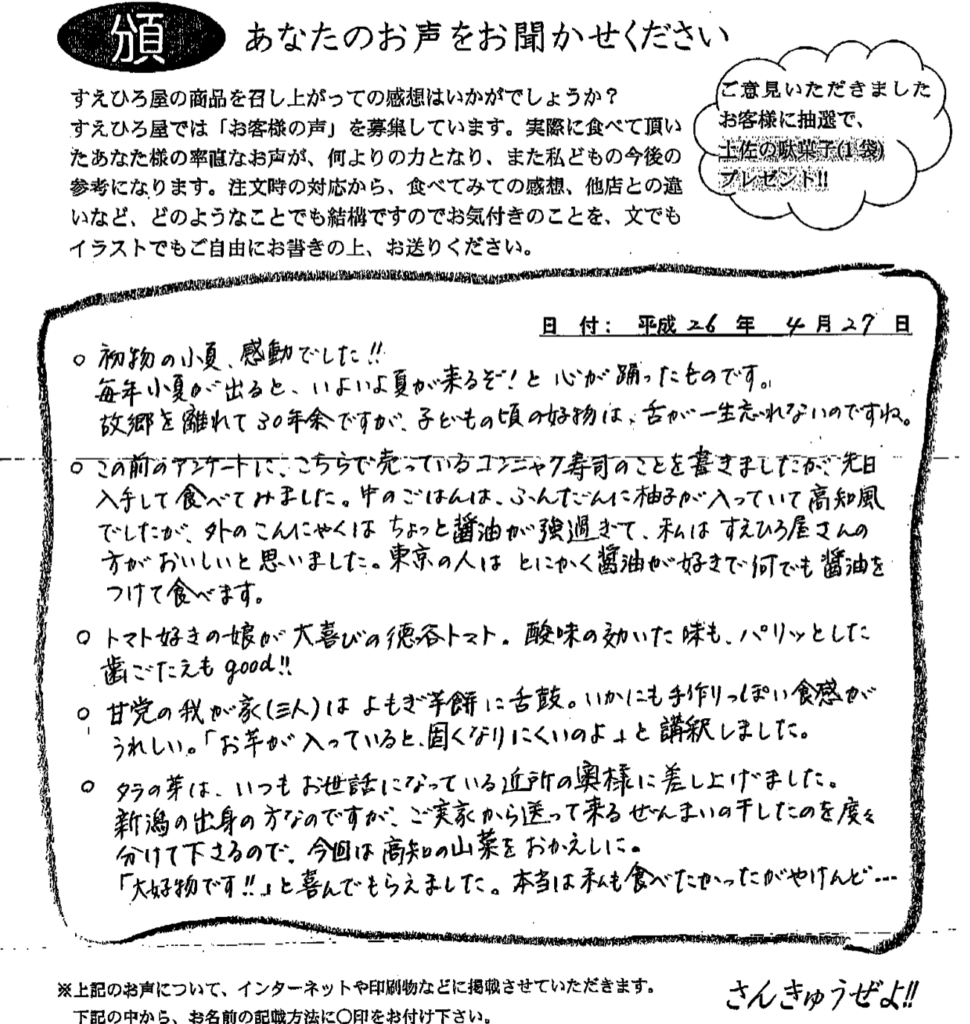 頒 あなたのお声をお聞かせください
すえひろ屋の商品を召し上がっての感想はいかがでしょうか？
すえひろ屋では「お客様の声」を募集しています。実際に食べて頂い
たあなた様の率直なお声が、何よりの力となり、また私どもの今後の
参考になります。注文時の対応から、食べてみての感想、他店との違
いなど、どのようなことでも結構ですのでお気付きのことを、文でも
イラストでもご自由にお書きの上、お送りください。
ご意見いただきました
お客様に抽選で、
土佐の駄菓子(1袋)
プレゼント!!
日 付： 平成 26 年 4 月 27 日
○ 初物の小夏、感動でした!!
毎年小夏が出ると、いよいよ夏が来るぞ！と心が踊ったものです。
故郷を離れて30年余ですが、子どもの頃の好物は、舌が一生忘れないのですね。
○ この前のアンケートに、こちらで売っているコンニャク寿司のことを書きましたが、先日
入手して食べてみました。中のごはんは、ふんだんに柚子が入っていて高知風
でしたが、外のこんにゃくはちょっと醤油が強過ぎて、私はすえひろ屋さんの
方がおいしいと思いました。東京の人はとにかく醤油が好きで何でも醤油を
つけて食べます。
○ トマト好きの娘が大喜びの徳谷トマト。酸味の効いた味も、パリッとした
歯ごたえもgood!!
○ 甘党の我が家(三人)はよもぎ芋餅に舌鼓。いかにも手作りっぽい食感が
うれしい。「お芋が入っていると、固くなりにくいのよ」と講釈しました。
○ タラの芽は、いつもお世話になっている近所の奥様に差し上げました。
新潟の出身の方なのですが、ご実家から送って来るぜんまいの干したのを度々
分けて下さるので、今回は高知の山菜をおかえしに。
「大好物です!!」と喜んでもらえました。本当は私も食べたかったがやけんど…
※上記のお声について、インターネットや印刷物などに掲載させていただきます。
下記の中から、お名前の記載方法に○印をお付け下さい。
さんきゅうぜよ!!